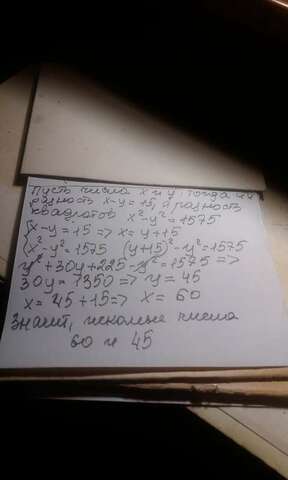 Пусть числа x и y, тогда их
разность x-y=15, а разность
квадратов x²-y²=1575
{x-y=15 => x=y+15
{x²-y²=1575 (y+15)²-y²=1575
y²+30y+225-y²=1575 =>
30y=1350 => y=45
x=45+15 => x=60
Значит, искомые числа
60 и 45